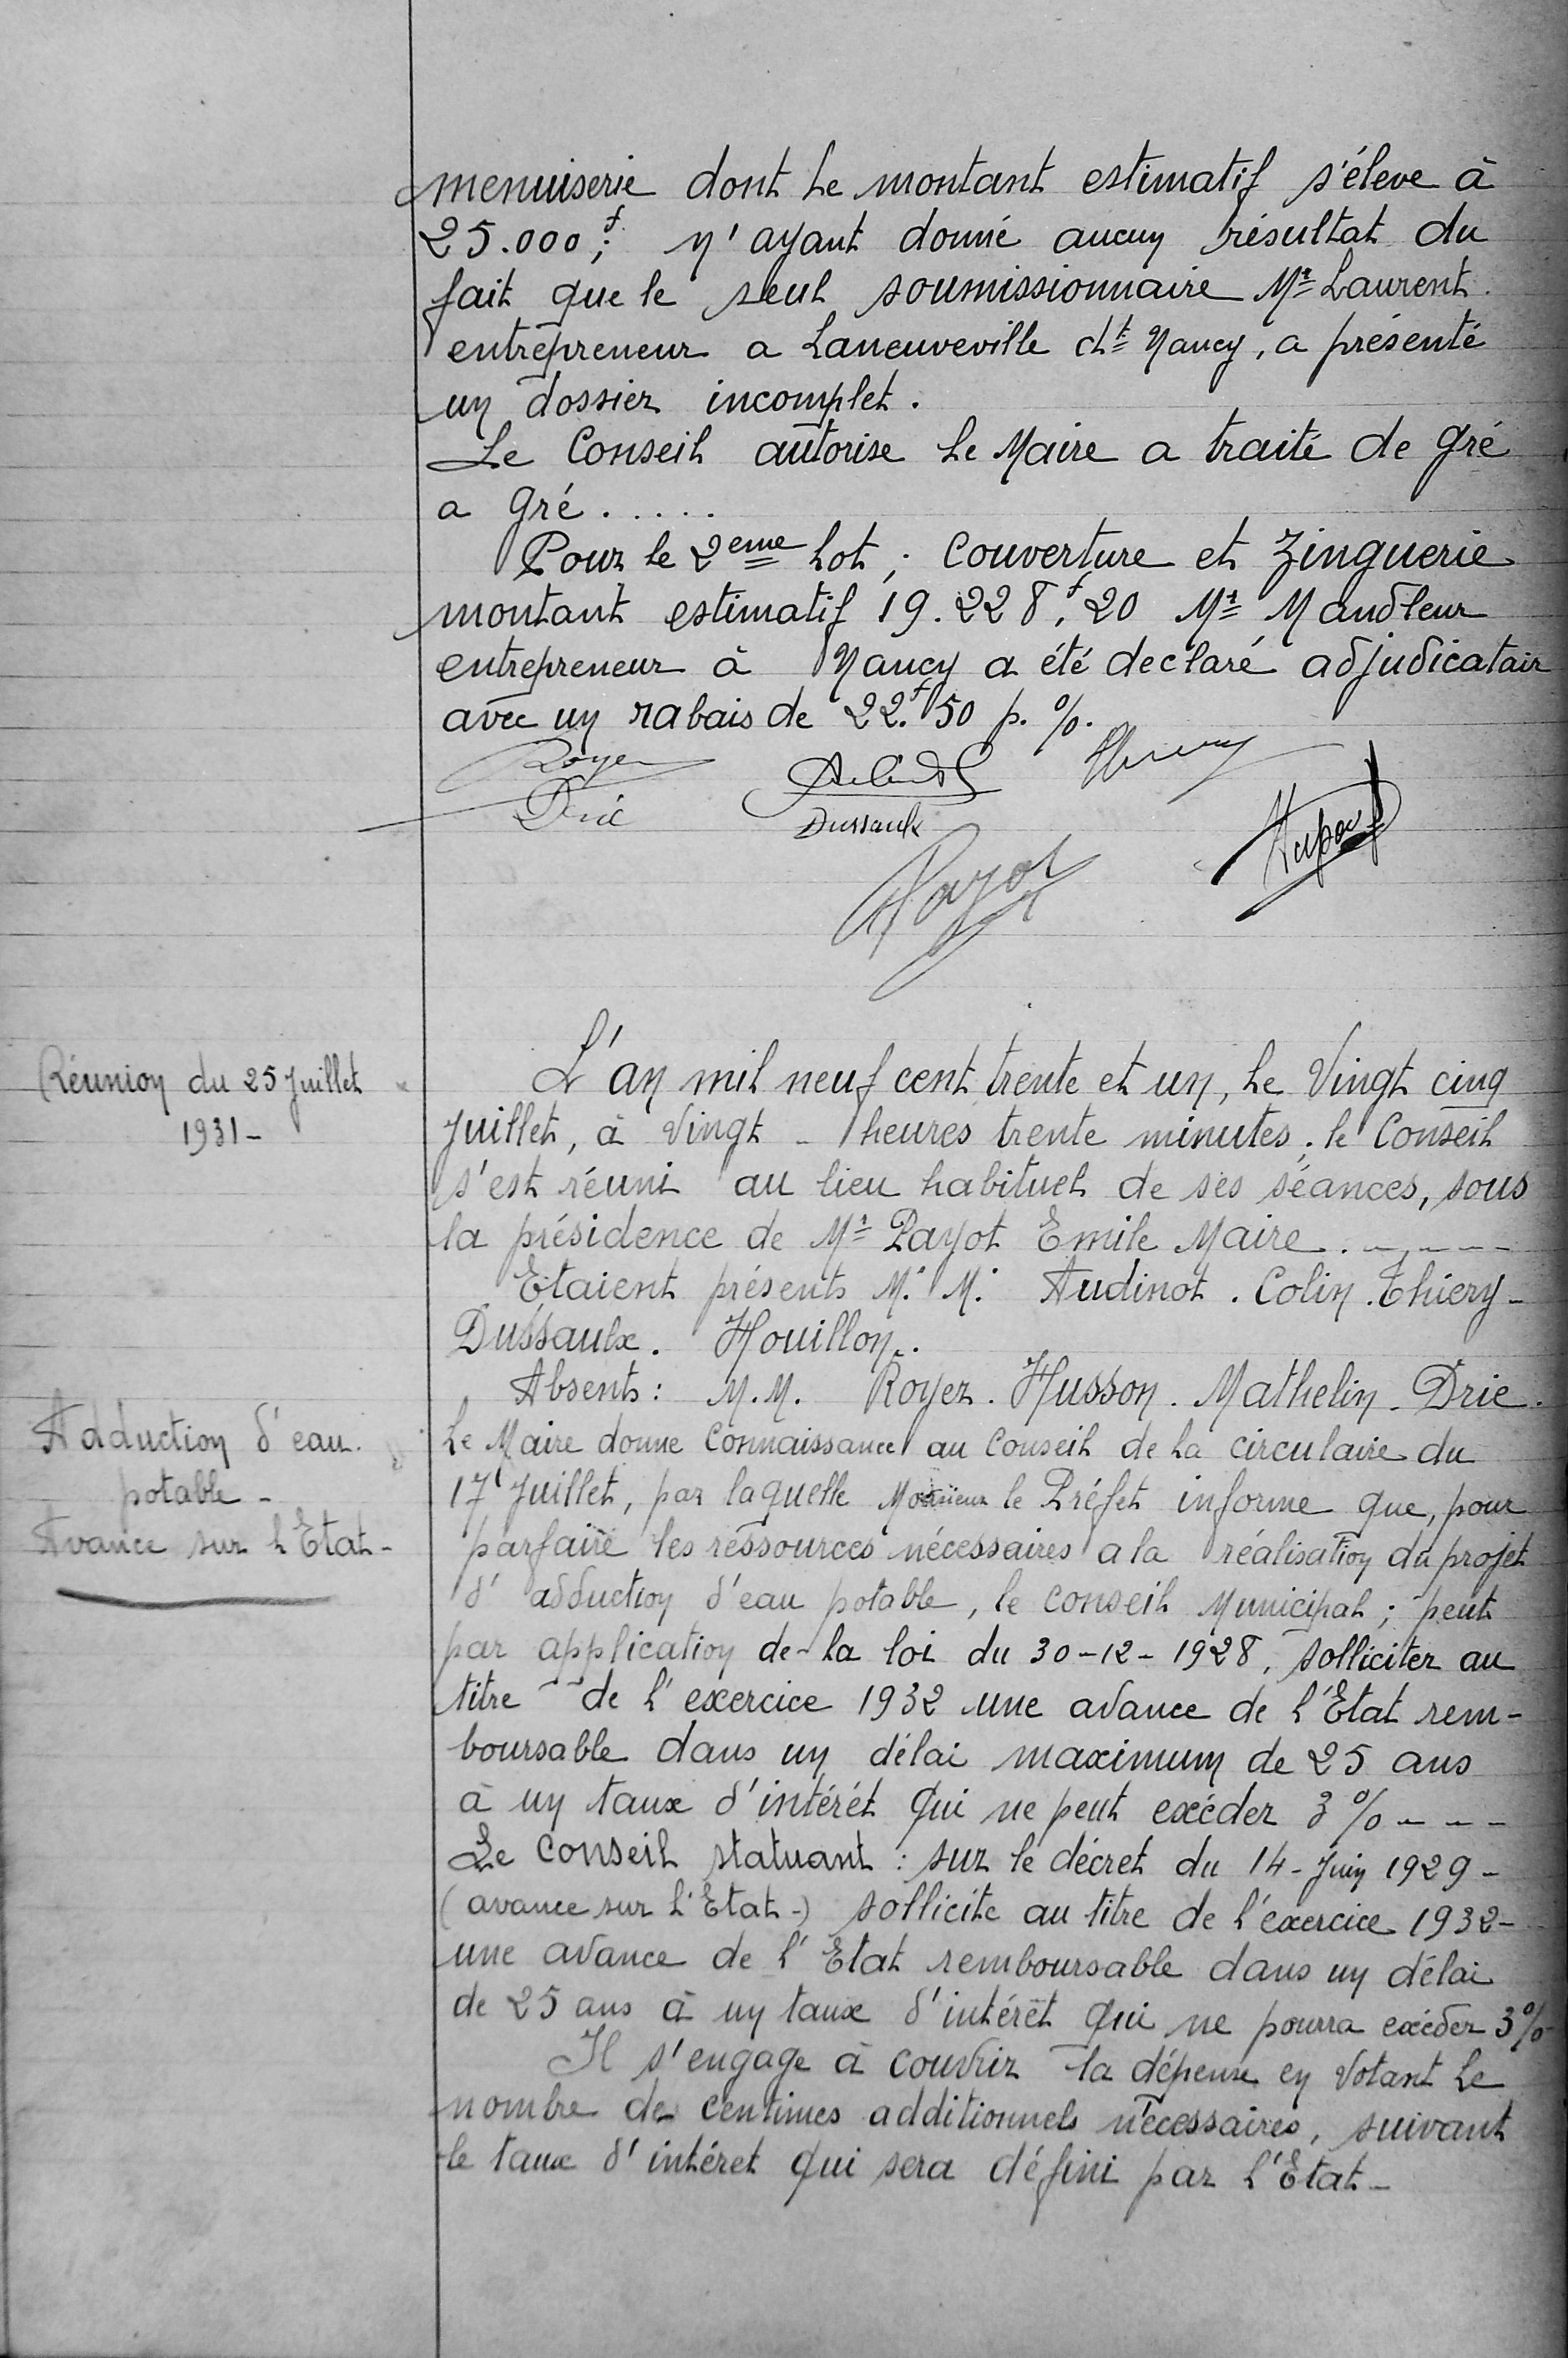 menuiserie dont le montant estimatif s'éleve à
25.000f; n'ayant donné aucun résultat du
fait que le seul soumissionnaire Mr Laurent
entrepreneur a Laneuveville dt Nancy, a présenté
un dossier incomplet.
Le Conseil autorise le Maire a traité de gré
a gré.....
Pour le 2eme lot; Couverture et Zinguerie
montant estimatif 19.228f,20 Mr Maudleur
entrepreneur à Nancy a été declaré adjudicatair
avec un rabais de 22.f50 p. %.
Royer
Drie
Dussaulx
Payot
Réunion du 25 Juillet
1931-
L'an mil neuf cent trente et un, le Vingt cinq
Juillet, à Vingt - heures trente minutes; le Conseil
s'est réuni au lieu habituel de ses séances, sous
la présidence de Mr Payot Emile Maire.-----
Etaient présents M. M. Audinot. Colin. Thiery-
Dussaulx. Houillon.
Absents: M.M. Royer. Husson. Mathelin. Drie.
Adduction d'eau.
potable-
Avance sur l'Etat-
Le Maire donne Connaissance au Conseil de la circulaire du
17 Juillet, par laquelle Monsieur le Préfet informe que, pour
parfaire les ressources nécessaires a la réalisation du projet
d'adduction d'eau potable, le Conseil Municipal; peut
par application de la loi du 30-12-1928, solliciter au
titre de l'exercice 1932 une avance de l'Etat rem-
boursable dans un délai maximum de 25 ans
à un taux d'intérét qui ne peut exéder 3% ---
Le Conseil statuant: sur le décret du 14-Juin 1929-
(avance sur l'Etat-) sollicite au titre de l'éxercice 1932-
une avance de l'Etat remboursable dans un délai
de 25 ans à un taux d'intérèt qui ne pourra exéder 3%
Il s'engage à couvrir la dépense en votant le
nombre de centimes additionnels nécessaires, suivant
le taux d'intéret qui sera défini par l'Etat-